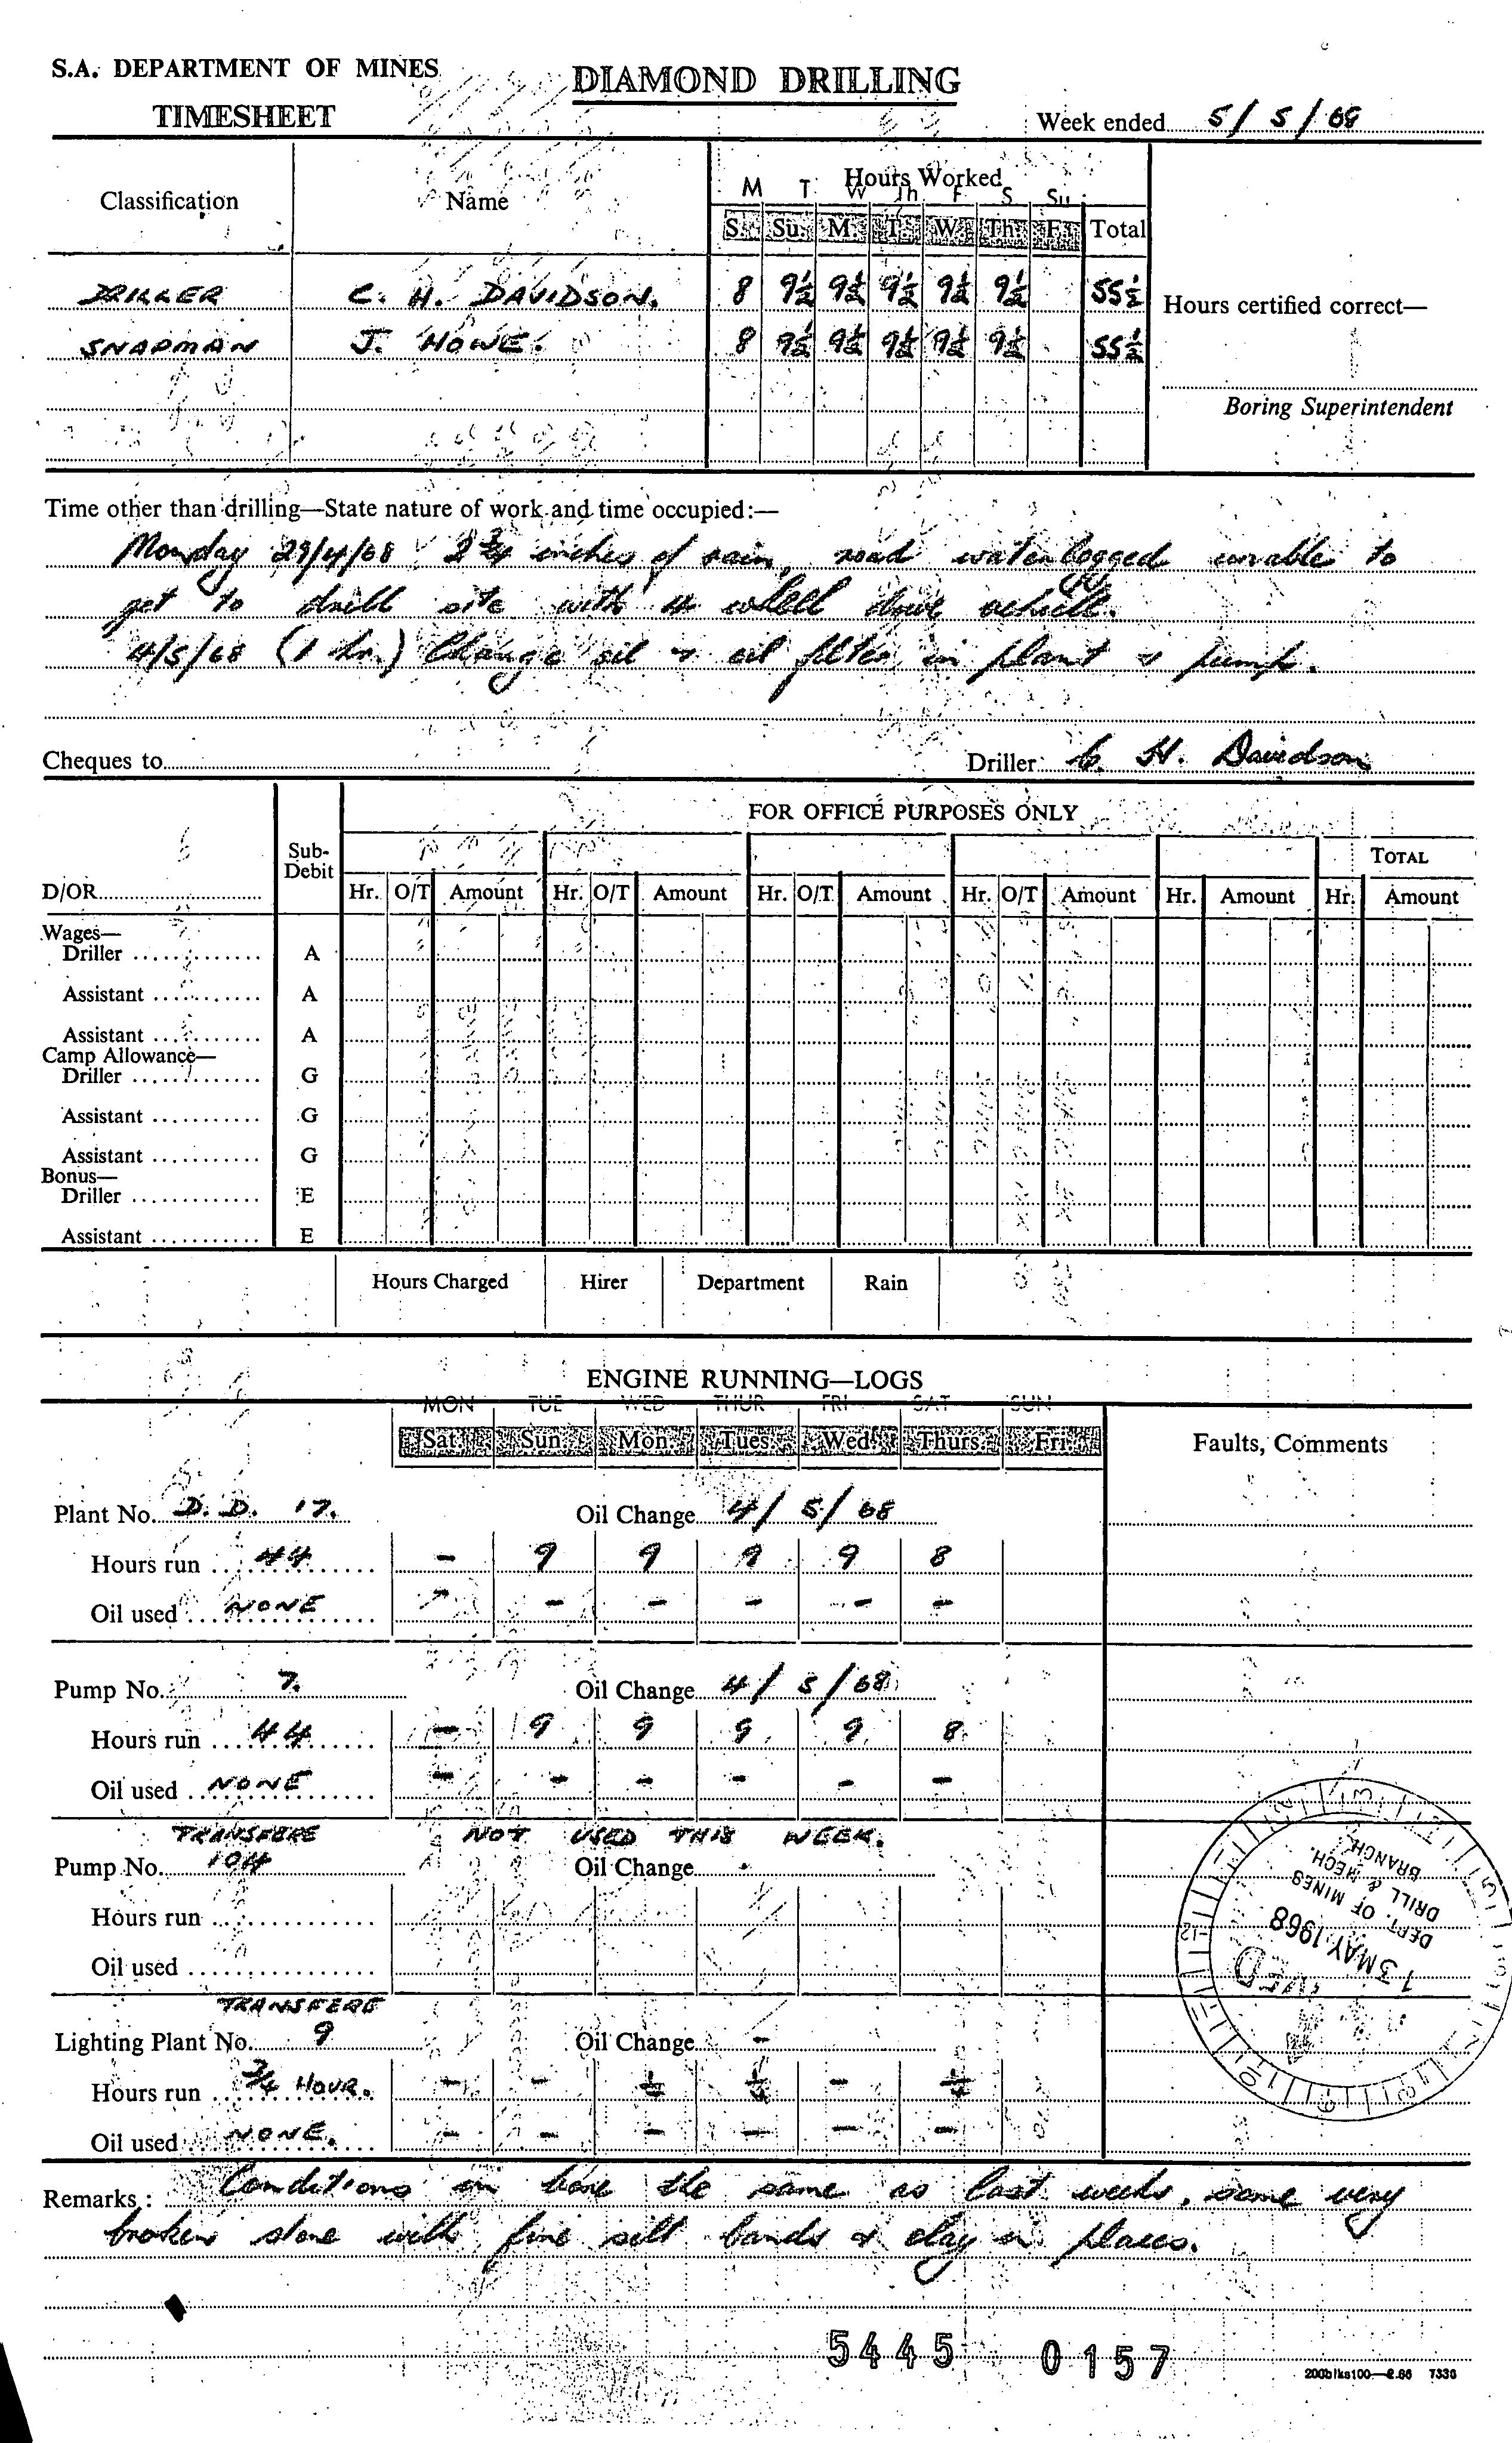 S.A. DEPARTMENT OF MINES
DIAMOND DRILLING
TIMESHEET
Week ended 5/5/68
Classification Name Hours Worked
M T W Th F S Su
S. Su. M. T. W. Th. F. Total
DRILLER C. H. DAVIDSON. 8 9½ 9½ 9½ 9½ 9½ 55½
Hours certified correct—
SNAPMAN J. HOWE. 8 9½ 9½ 9½ 9½ 9½ 55½
Boring Superintendent
Time other than drilling—State nature of work and time occupied:—
Monday 29/4/68 2¾ inches of rain, road waterlogged unable to
get to drill site with 4 wheel drive vehicle.
4/5/68 (1 hr.) Change oil & oil filter in plant & pump.
Cheques to Driller C. H. Davidson
FOR OFFICE PURPOSES ONLY
Sub-Debit TOTAL
D/OR Hr. O/T Amount Hr. O/T Amount Hr. O/T Amount Hr. O/T Amount Hr. Amount Hr. Amount
Wages—
Driller A
Assistant A
Assistant A
Camp Allowance—
Driller G
Assistant G
Assistant G
Bonus—
Driller E
Assistant E
Hours Charged Hirer Department Rain
ENGINE RUNNING—LOGS
MON TUE WED THUR FRI SAT SUN
Sat. Sun. Mon. Tues. Wed. Thurs. Fri. Faults, Comments
Plant No. D.D. 17. Oil Change 4/5/68
Hours run 44 - 9 9 9 9 8
Oil used NONE - - - - - -
Pump No. 7. Oil Change 4/5/68
Hours run 44 - 9 9 9 9 8
Oil used NONE - - - - - -
TRANSFERE NOT USED THIS WEEK.
Pump No. 104 Oil Change -
Hours run
Oil used
TRANSFERE
Lighting Plant No. 9 Oil Change -
Hours run ¾ HOUR. - - ¼ ¼ - ¼
Oil used NONE. - - - - - -
DEPT. OF MINES
DRILL & MECH.
BRANCH.
13 MAY 1968
Remarks: Conditions in bore the same as last weeks, some very
broken stone with fine silt bands & clay in places.
5445 0157
200blks100—2.66 7330